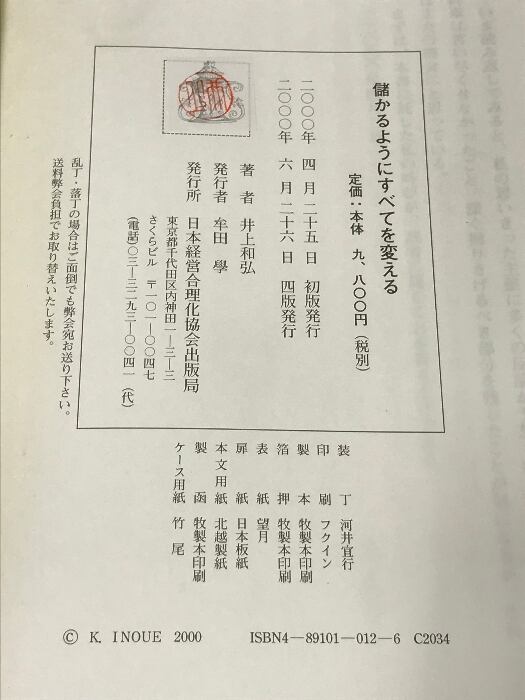 儲かるようにすべてを変える
定価：本体 九、八〇〇円（税別）
二〇〇〇年 四 月 二十五日 初版発行
二〇〇〇年 六 月 二十六日 四版発行
著 者 井上和弘
発行者 牟田 學
発行所 日本経営合理化協会出版局
東京都千代田区内神田一―三―三
さくらビル 〒一〇一―〇〇四七
（電話）〇三―三二九三―〇〇四一（代）
乱丁・落丁の場合はご面倒でも弊会宛お送り下さい。
送料弊会負担でお取り替えいたします。
装 丁 河井宜行
印 刷 フクイン
製 本 牧製本印刷
箔 押 牧製本印刷
表 紙 望月
扉 紙 日本板紙
本文用紙 北越製紙
製 函 牧製本印刷
ケース用紙 竹 尾
© K. INOUE 2000 ISBN4―89101―012―6 C2034